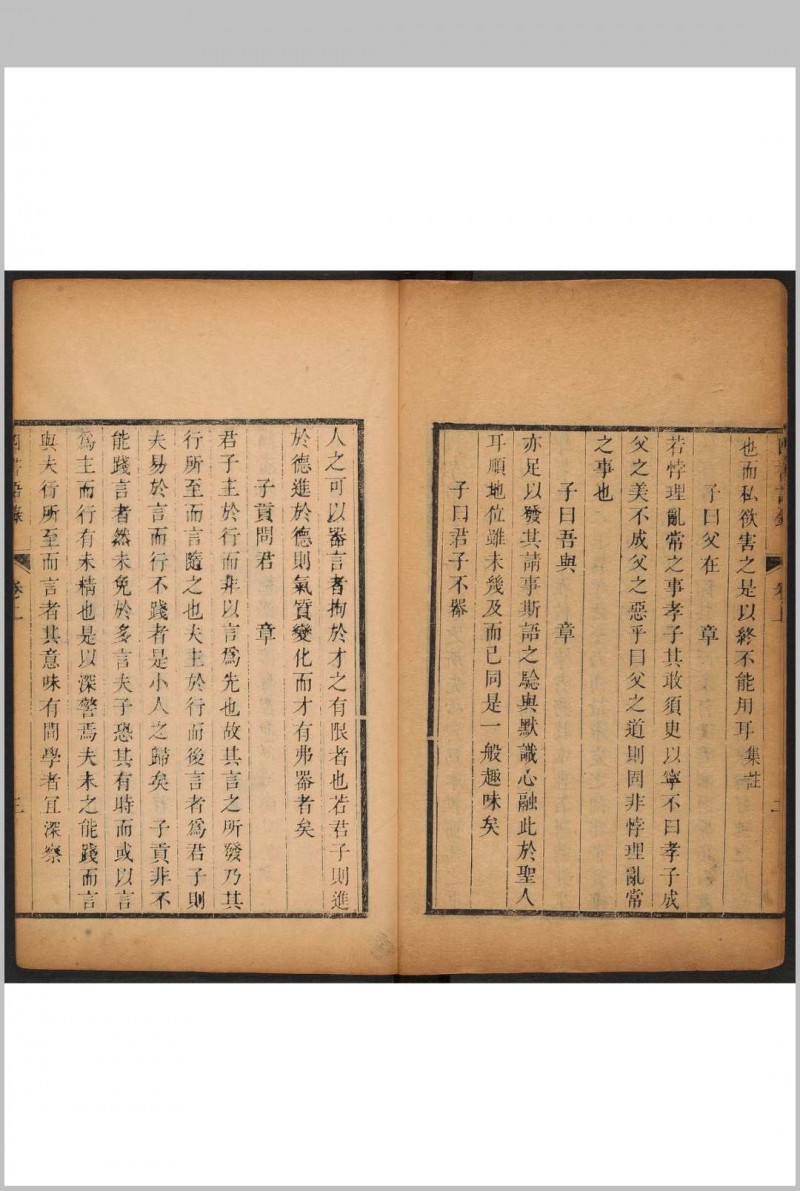 也而私欲害之是以終不能用耳集註
子曰父在 章
若悖理亂常之事孝子其敢須臾以寧不曰孝子成
父之美不成父之惡乎曰父之道則固非悖理亂常
之事也
子曰吾與 章
亦足以發其請事斯語之驗與默識心融此於聖人
耳順地位雖未幾及而已同是一般趣味矣
子曰君子不器
人之可以器言者拘於才之有限者也若君子則進
於德進於德則氣質變化而才有弗器者矣
子貢問君 章
君子主於行而非以言爲先也故其言之所發乃其
行所至而言隨之也夫主於行而後言者爲君子則
夫易於言而行不踐者是小人之歸矣 子貢非不
能踐言者然未免於多言夫子恐其有時而或以言
爲主而行有未精也是以深警焉夫未之能踐而言
與夫行所至而言者其意味有間學者宜深察
語錄 卷上 三